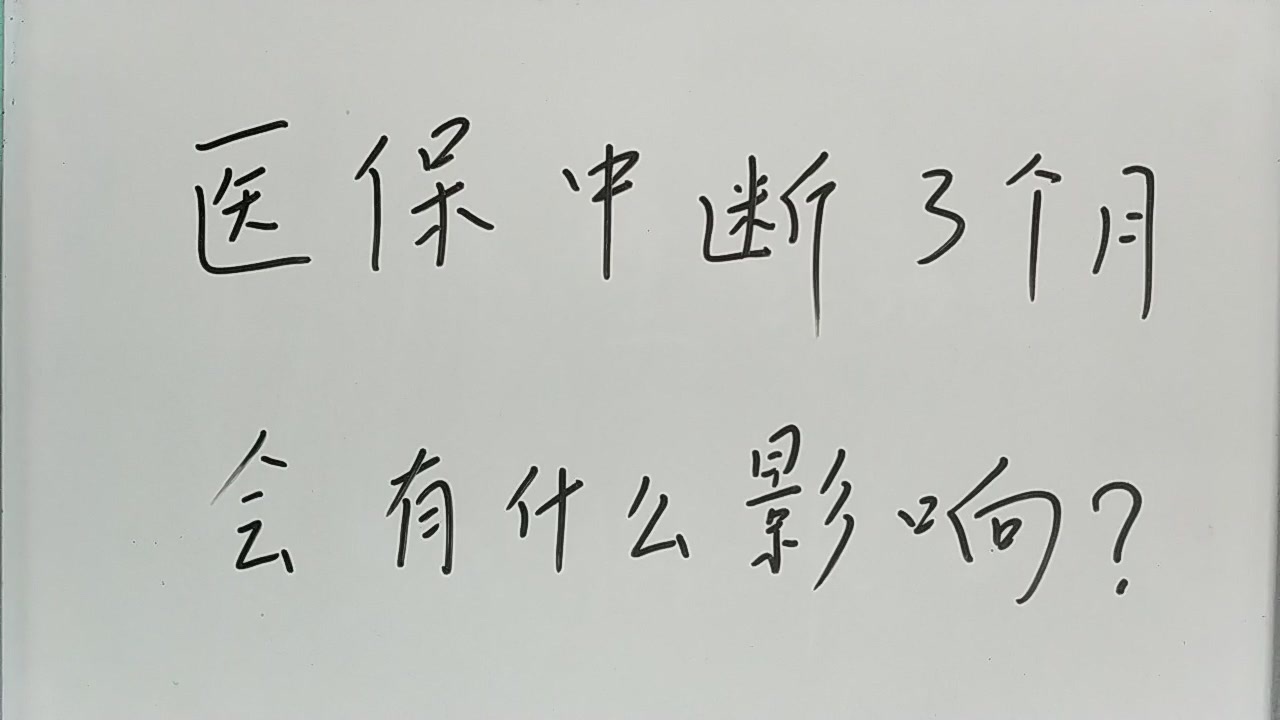 医保中断3个月
会有什么影响?